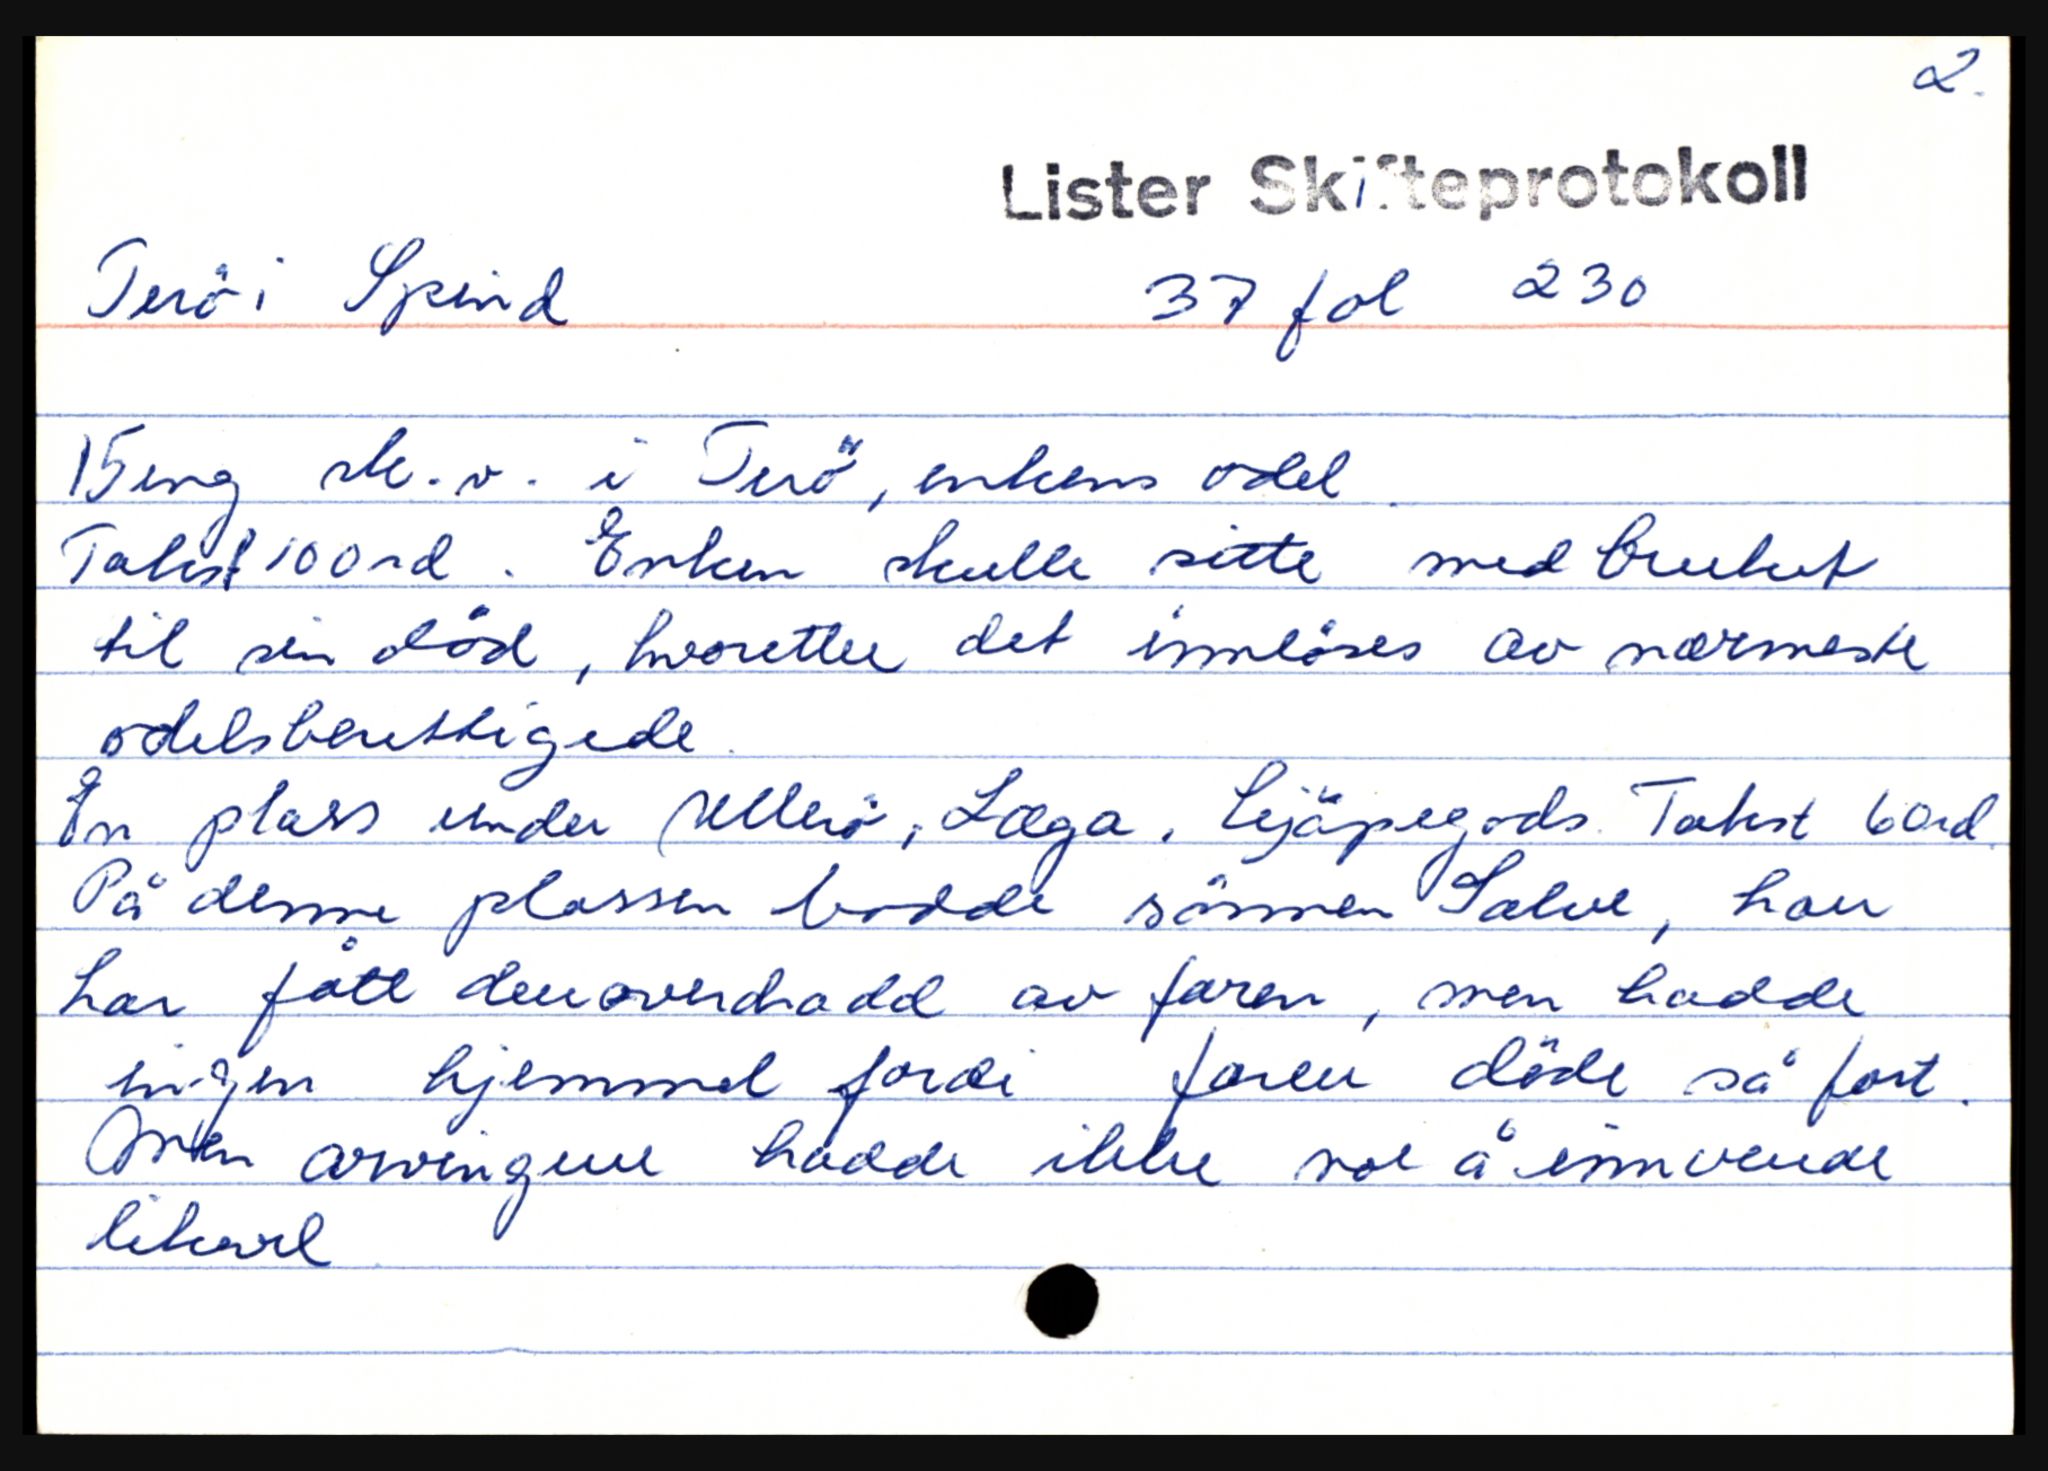 2.
Lister Skifteprotokoll
Terö i Spind 37 fol 230
15 eng sk. v. i Terö, enkens odel.
Takst 100 rd. Enken skulle sitte med bruket
til sin död, hvoretter det innlöses av nærmeste
odelsberettigede.
En plass under Ullerö, Læga. Kjöpegods. Takst 60 rd.
På denne plassen bodde sönnen Salve, han
har fått den overdradd av faren, men hadde
ingen hjemmel fordi faren döde så fort.
Men arvingene hadde ikke noe å innvende
likevel.